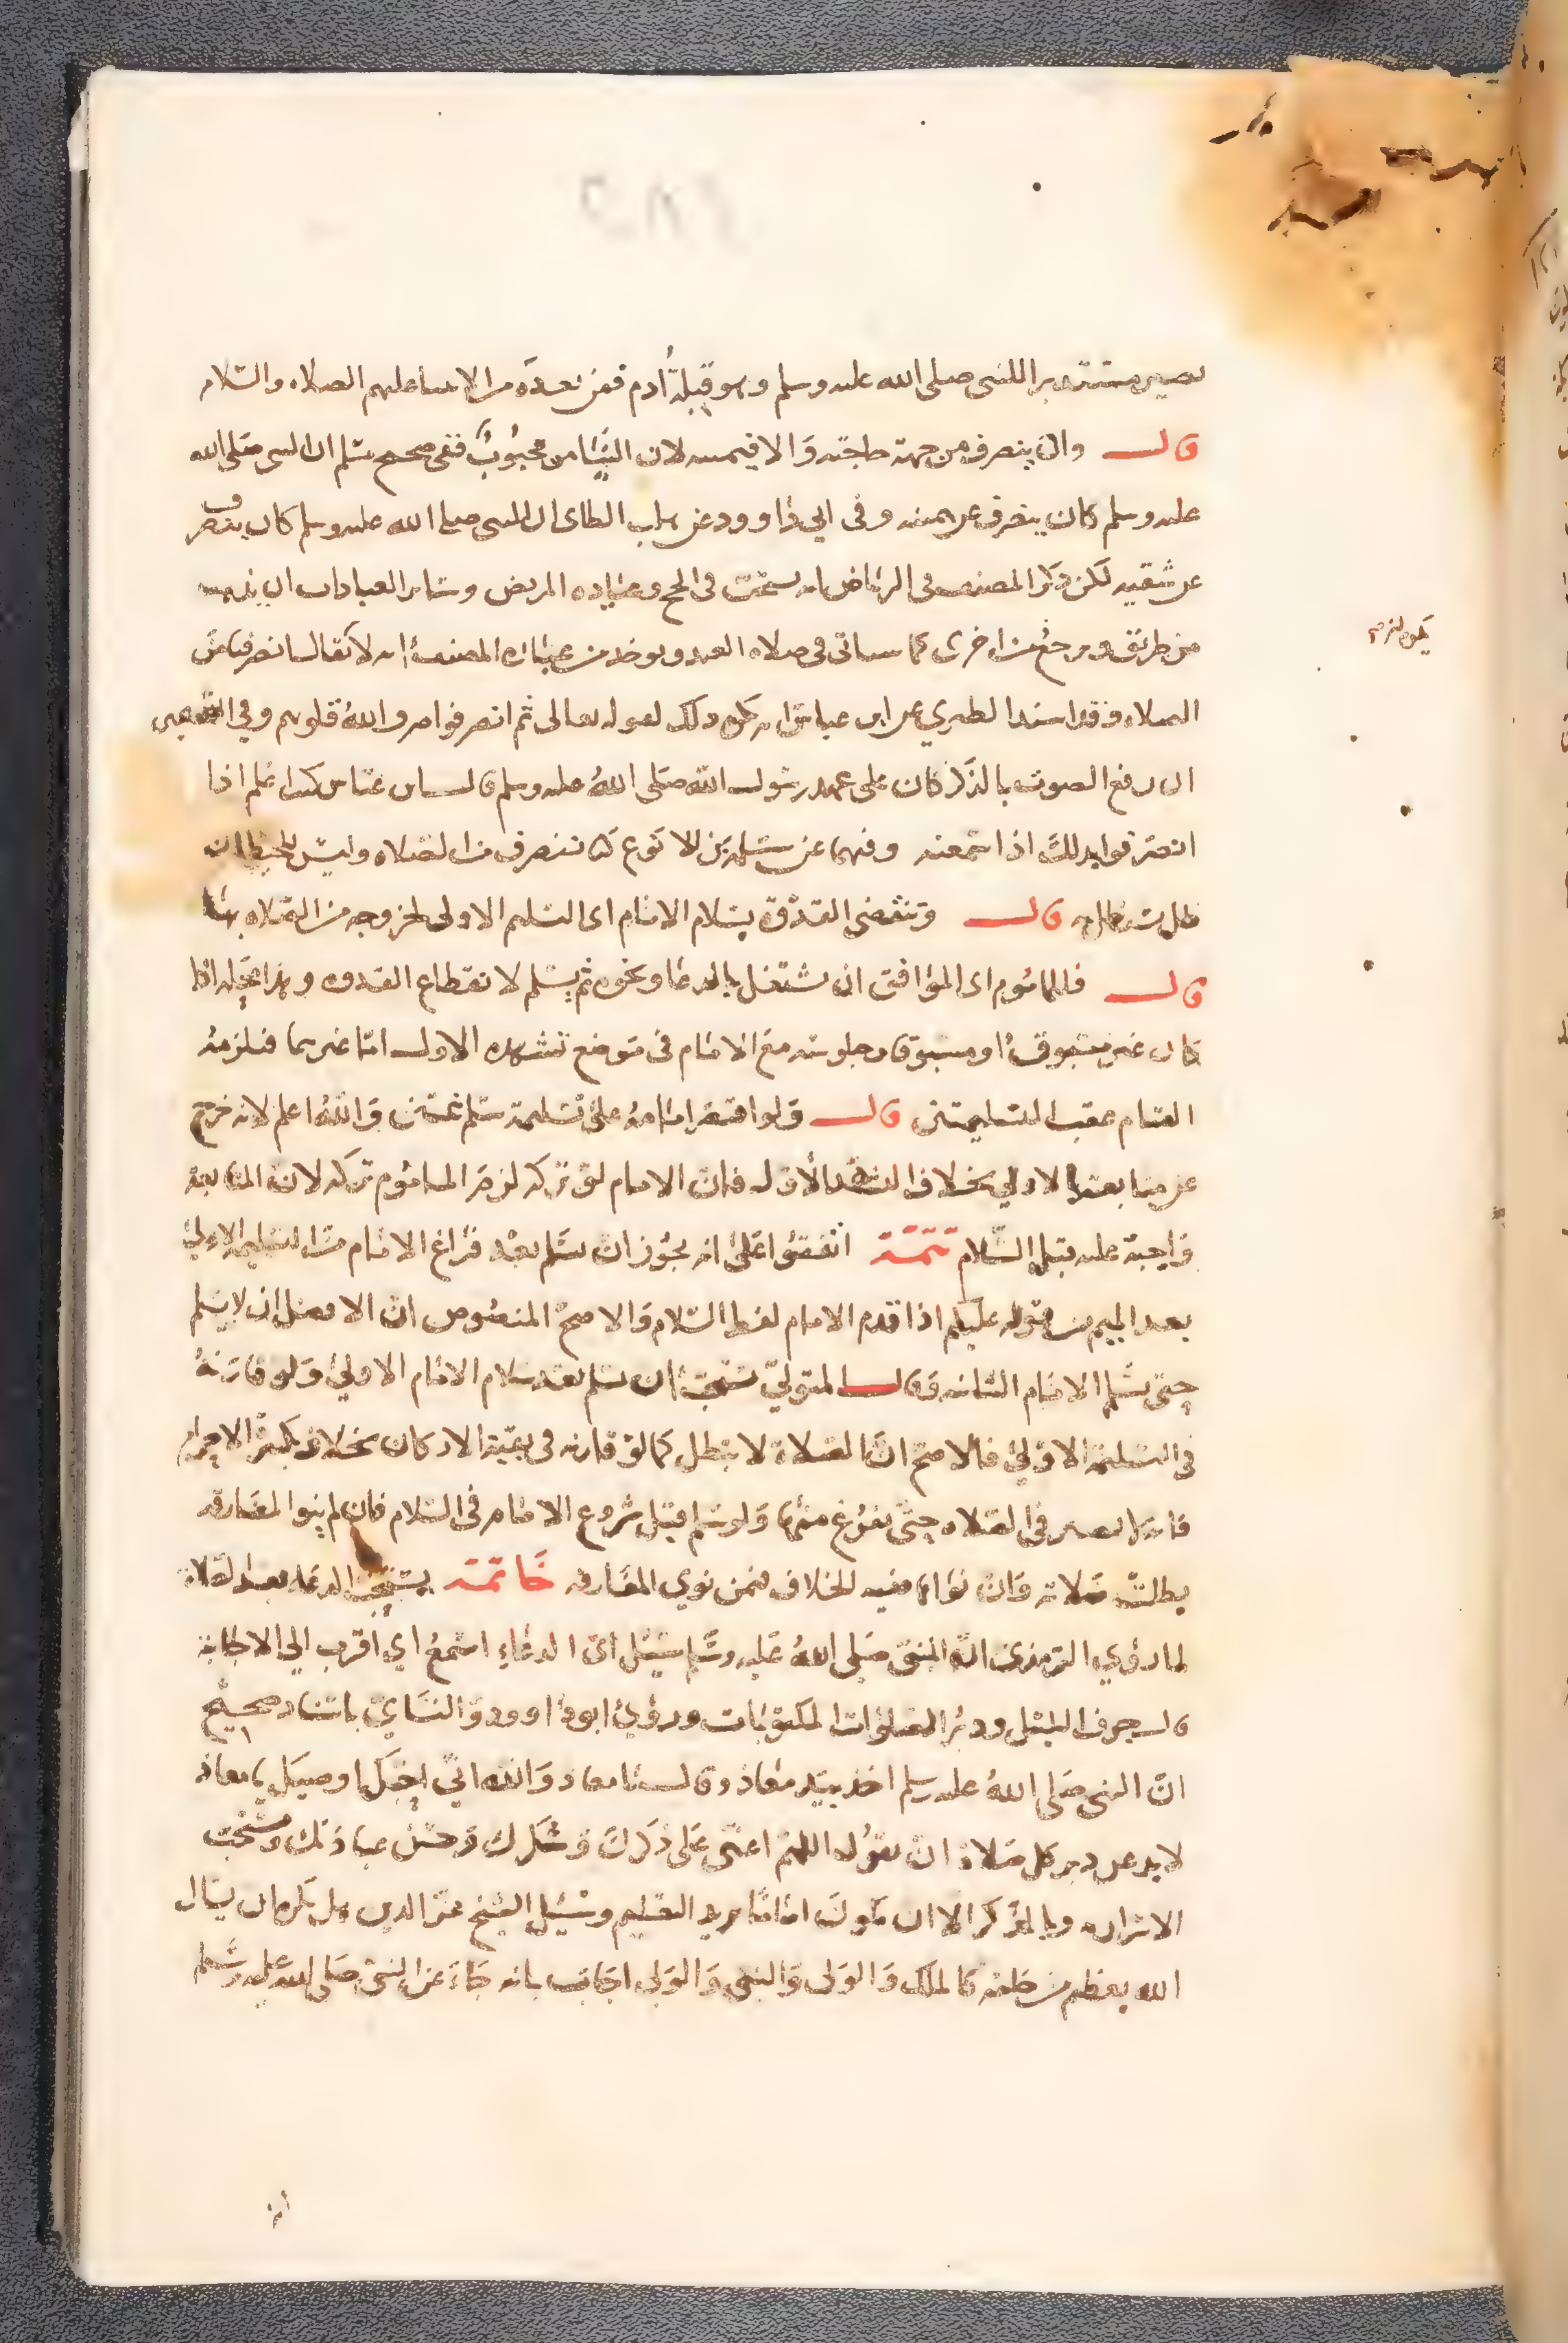 يصير مستدبرا للنبي صلى الله عليه وسلم وهو قبلة آدم فمن بعده من الانبيا عليهم الصلاه والسلام
قال وان ينصرف من جهة حاجته والا فيمينه لان التيامن محبوب ففي صحيح مسلم ان النبي صلى الله
عليه وسلم كان ينصرف عن يمينه وفي ابي داوود عن هلب الطاى ان النبي صلى الله عليه وسلم كان ينصرف
عن شقيه لكن ذكر المصنف في الرياض انه يستحب في الحج وعياده المريض وساير العبادات ان يذهب
من طريق ويرجع من اخرى كما سياتي في صلاه العيد ويوخذ من عباره المصنف انه لا يقال انصرفنا من
الصلاه وقد اسند الطبري عن ابن عباس انه يكره ذلك لقوله تعالى ثم انصرفوا صرف الله قلوبهم وفي الصحيحين
ان رفع الصوت بالذكر كان على عهد رسول الله صلى الله عليه وسلم قال ابن عباس كنت اعلم اذا
انصرفوا بذلك اذا سمعته وفيهما عن سلمه بن الاكوع كنا ننصرف من الصلاه وليس للحيطان
ظل يستظل به قال وتنقضي القدوة بسلام الامام اى التسليم الاولى لخروجه من الصلاه بها
قال فللماموم اى الموافق ان يشتغل بالدعا ونحوه ثم يسلم لانقطاع القدوه وهذا محله اذا
كان غير مسبوق او مسبوقا وجلوسه مع الامام في موضع تشهده الاول اما غيرهما فيلزمه
القيام عقب التسليمتين قال ولو اقتصر امامه على تسليمة سلم ثنتين والله اعلم لانه خرج
عن متابعته بالاولى بخلاف التشهد الاول فان الامام لو تركه لزم الماموم تركه لان المتابعه
واجبة عليه قبل السلام تتمة اتفقوا على انه يجوز ان يسلم بعد فراغ الامام من التسليمه الاولى
بعد الميم من قوله عليكم اذا قدم الامام لفظ السلام والاصح المنصوص ان الافضل ان لا يسلم
حتى يسلم الامام الثانيه وقال المتولي يستحب ان يسلم بعد سلام الامام الاولى ولو قارنه
في التسليمه الاولى فالاصح ان الصلاة لا تبطل كما لو قارنه في بقية الاركان بخلاف تكبيرة الاحرام
فانه لا يصير في الصلاه حتى يفرغ منها ولو سلم قبل شروع الامام في السلام فان لم ينو المفارقه
بطلت صلاته وان نواها ففيه الخلاف فيمن نوي المفارقه خاتمة يستحب الدعا بعد الصلاة
لما روي الترمذي ان النبي صلى الله عليه وسلم سئل اي الدعاء اسمع اي اقرب الي الاجابة
قال جوف الليل ودبر الصلوات المكتوبات وروي ابو داوود والنسائي باسناد صحيح
ان النبي صلى الله عليه وسلم اخذ بيد معاذ وقال يا معاذ والله اني لاحبك اوصيك يا معاذ
لا تدعن دبر كل صلاة ان تقول اللهم اعني على ذكرك وشكرك وحسن عبادتك ويستحب
الاسرار به وبالذكر الا ان يكون اماما يريد التعليم وسئل الشيخ عز الدين هل يكره ان يسال
الله بعظيم من خلقه كالملك والولى والنبي والولى اجاب بانه جاء عن النبي صلى الله عليه وسلم